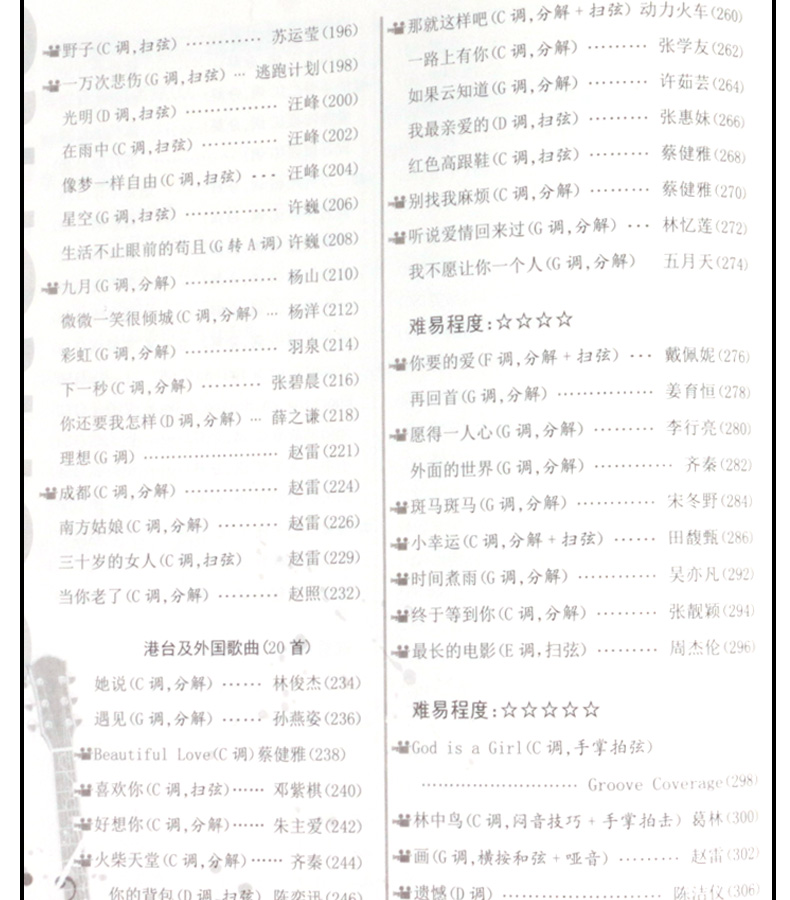 野子(C 调,扫弦) ············ 苏运莹(196)
一万次悲伤(G 调,扫弦) ··· 逃跑计划(198)
光明(D 调,扫弦) ··············· 汪峰(200)
在雨中(C 调,扫弦) ············· 汪峰(202)
像梦一样自由(C 调,扫弦) ··· 汪峰(204)
星空(G 调,扫弦) ··············· 许巍(206)
生活不止眼前的苟且(G 转 A 调) 许巍(208)
九月(G 调,分解) ··············· 杨山(210)
微微一笑很倾城(C 调,分解) ··· 杨洋(212)
彩虹(G 调,分解) ··············· 羽泉(214)
下一秒(C 调,分解) ········· 张碧晨(216)
你还要我怎样(D 调,分解) ··· 薛之谦(218)
理想(G 调) ······················ 赵雷(221)
成都(C 调,分解) ··············· 赵雷(224)
南方姑娘(C 调,分解) ········· 赵雷(226)
三十岁的女人(C 调,扫弦) 赵雷(229)
当你老了(C 调,分解) ········· 赵照(232)
港台及外国歌曲(20 首)
她说(C 调,分解) ······ 林俊杰(234)
遇见(G 调,分解) ······ 孙燕姿(236)
Beautiful Love(C 调) 蔡健雅(238)
喜欢你(C 调,扫弦)······ 邓紫棋(240)
好想你(C 调,分解)······ 朱主爱(242)
火柴天堂(C 调,分解)······ 齐秦(244)
你的背包(D 调,扫弦) 陈奕迅(246)
那就这样吧(C 调,分解 + 扫弦) 动力火车(260)
一路上有你(C 调,分解) ········· 张学友(262)
如果云知道(G 调,分解) ········· 许茹芸(264)
我最亲爱的(D 调,扫弦) ········· 张惠妹(266)
红色高跟鞋(C 调,扫弦) ········· 蔡健雅(268)
别找我麻烦(C 调,分解) ········· 蔡健雅(270)
听说爱情回来过(G 调,分解) ··· 林忆莲(272)
我不愿让你一个人(G 调,分解) 五月天(274)
难易程度:☆☆☆☆
你要的爱(F 调,分解 + 扫弦) ··· 戴佩妮(276)
再回首(G 调,分解) ·············· 姜育恒(278)
愿得一人心(G 调,分解) ········· 李行亮(280)
外面的世界(G 调,分解) ············ 齐秦(282)
斑马斑马(G 调,分解) ············ 宋冬野(284)
小幸运(C 调,分解 + 扫弦) ······ 田馥甄(286)
时间煮雨(G 调,分解) ············ 吴亦凡(292)
终于等到你(C 调,分解) ········· 张靓颖(294)
最长的电影(E 调,扫弦) ········· 周杰伦(296)
难易程度:☆☆☆☆☆
God is a Girl(C 调,手掌拍弦)
························ Groove Coverage(298)
林中鸟(C 调,闷音技巧 + 手掌拍击) 葛林(300)
画(G 调,横按和弦 + 哑音) ········· 赵雷(302)
遗憾(D 调) ····················· 陈洁仪(306)